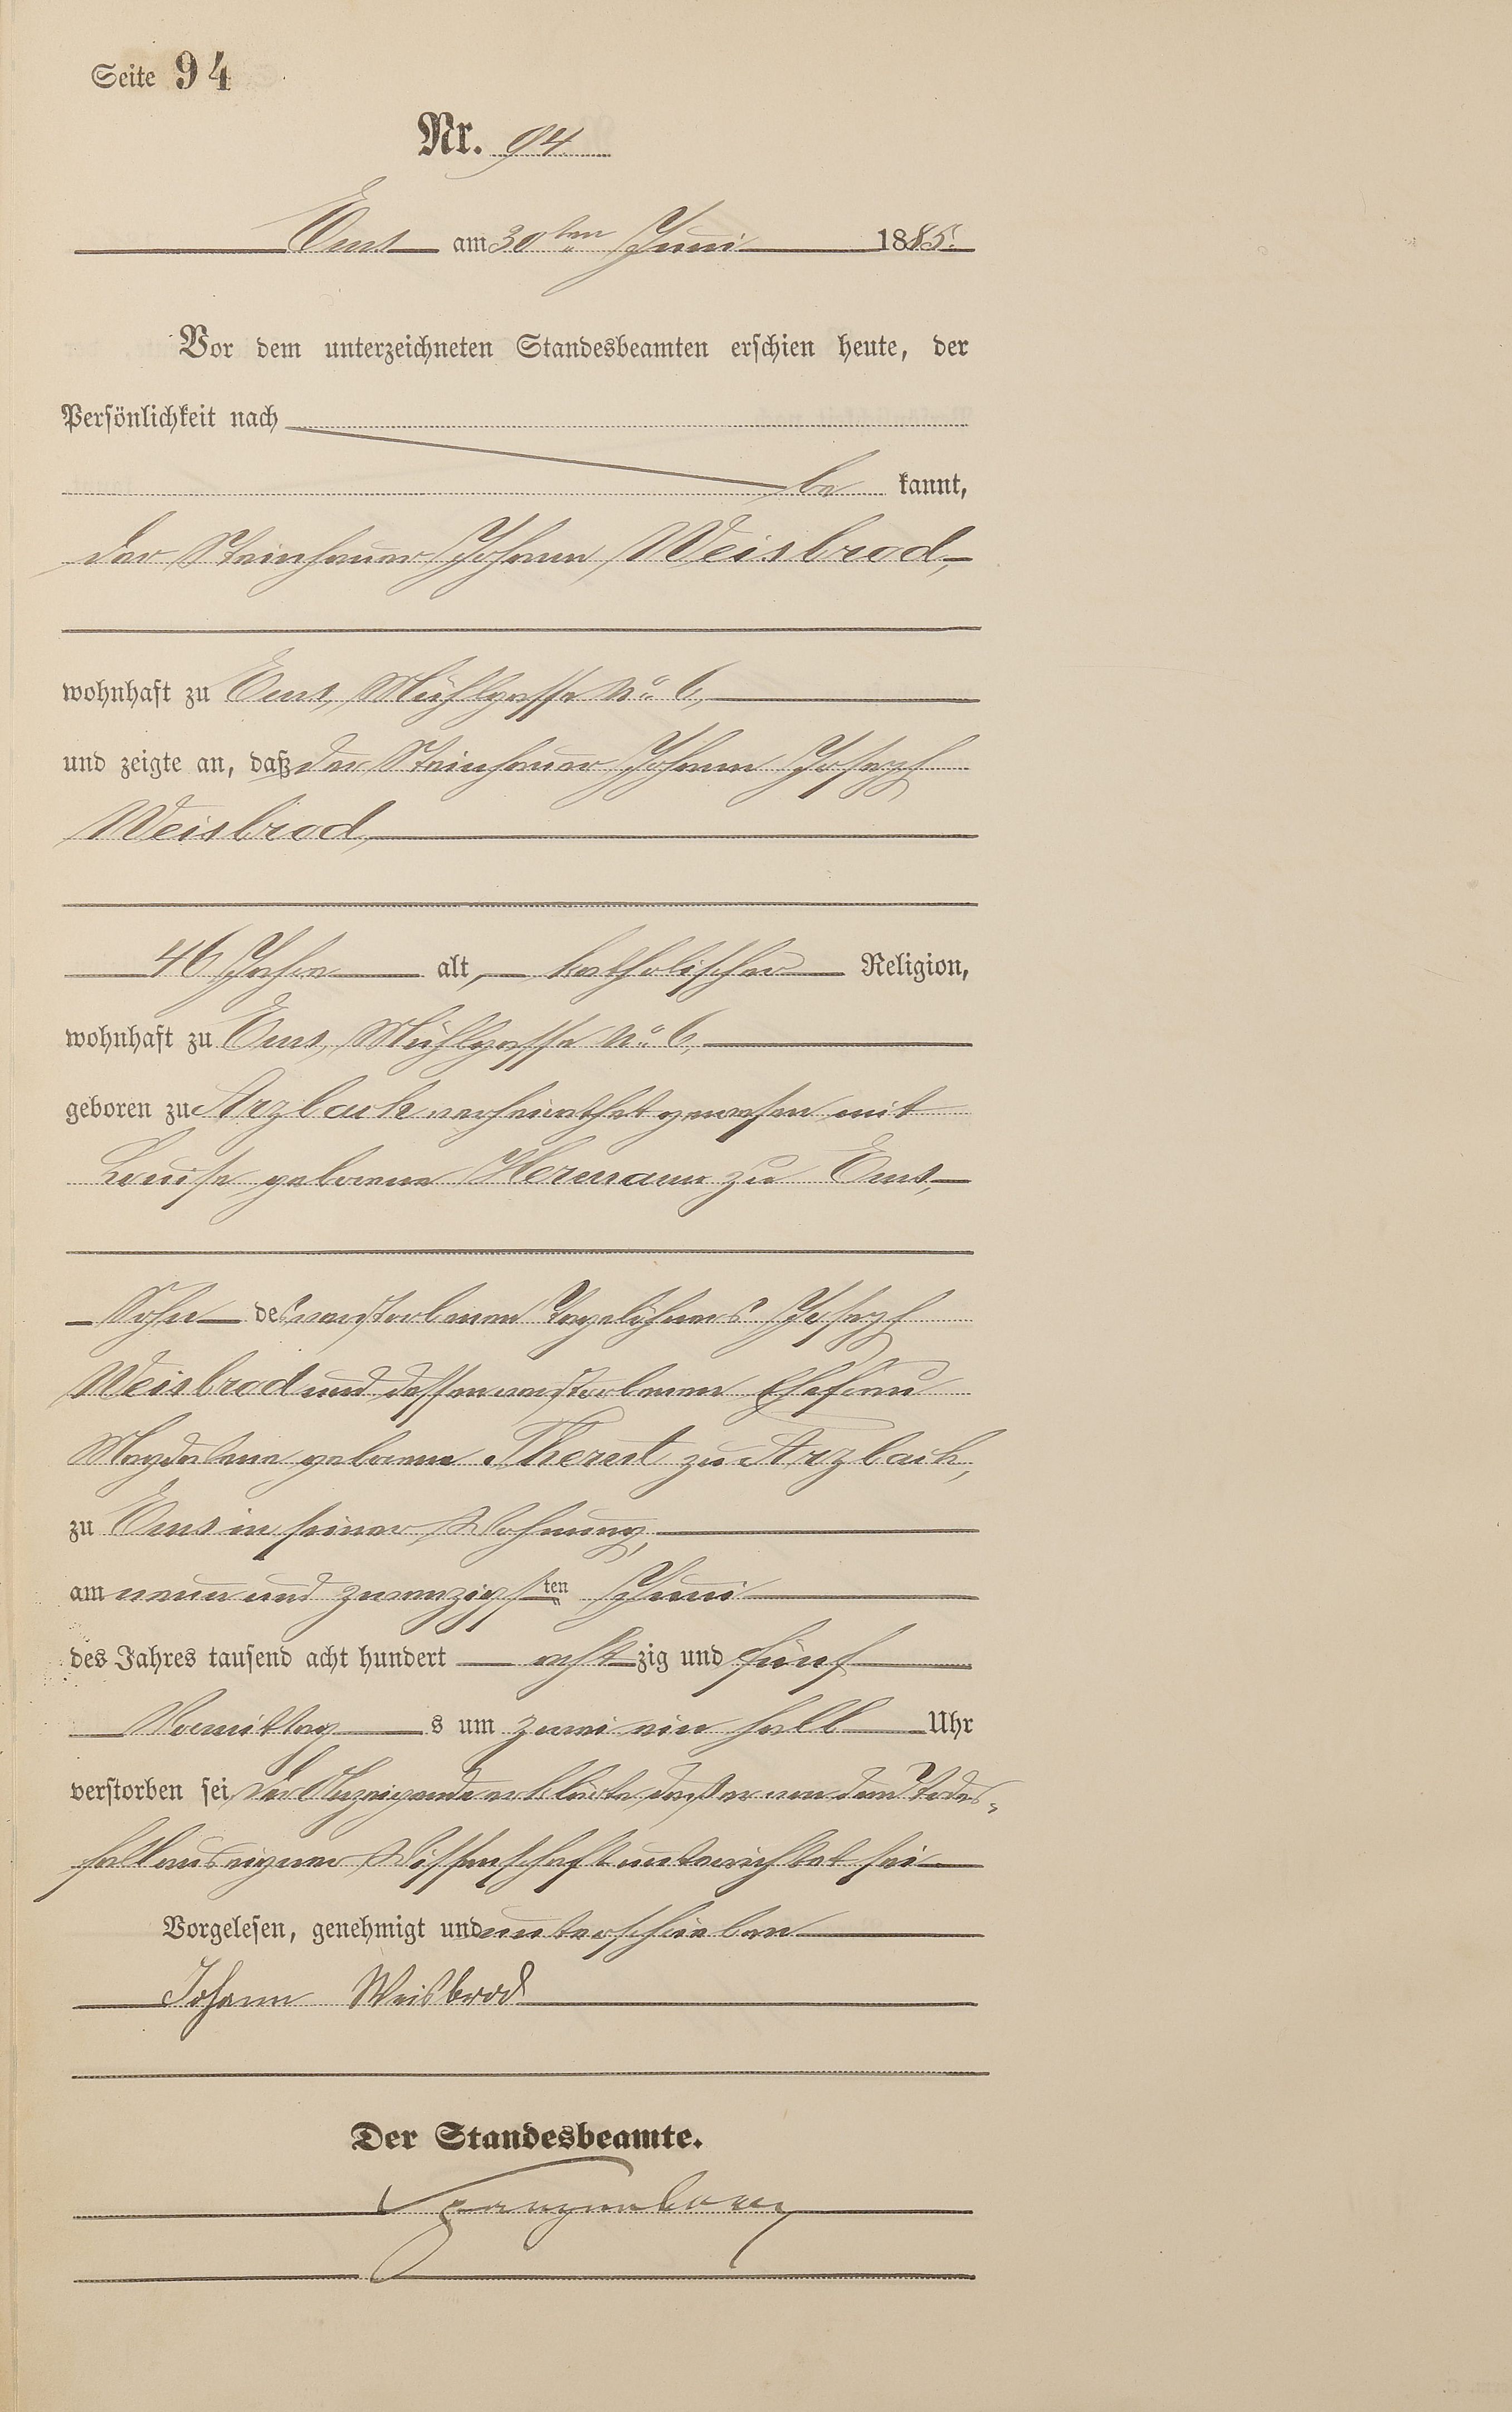 Seite 94
Nr. 94
Ems am 30ten Juni 1885.
Vor dem unterzeichneten Standesbeamten erschien heute, der
Persönlichkeit nach
be kannt,
der Steinhauer Johann Weisbrod,
wohnhaft zu Ems, Mühlgasse No. 6,
und zeigte an, daß der Steinhauer Johann Joseph
Weisbrod,
46 Jahre alt, katholischer Religion,
wohnhaft zu Ems, Mühlgasse No. 6,
geboren zu Arzbach verheirathet gewesen mit
Louise geborene Hermann zu Ems,
Sohn des verstorbenen Tagelöhners Joseph
Weisbrod und dessen verstorbenen Ehefrau
Magdalena geborene zu Arzbach,
zu Ems in seiner Wohnung,
am neun und zwanzigsten Juni
des Jahres tausend acht hundert acht zig und fünf
Vormittag s um zwei ein halb Uhr
verstorben sei, der Anzeigende erklärte, daß er von dem Todes-
fall aus eigener Wissenschaft unterrichtet sei
Vorgelesen, genehmigt und unterschrieben
Johann Weisbrod
Der Standesbeamte.